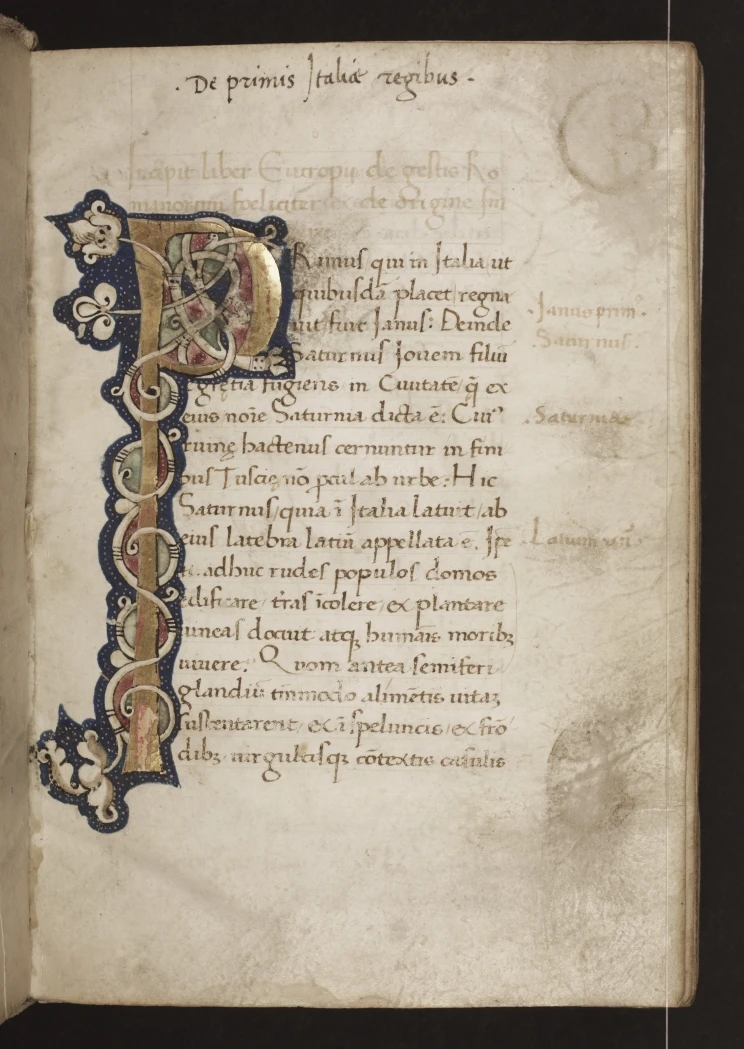 . De primis Italiæ regibus .
Incipit liber Eutropii de gestis Ro
manorum foeliciter de origine
PRimus qui in Italia ut
quibusdā placet regna
uit fuit Janus: Deinde
Saturnus Jouem filiū
egrętia fugiens in Ciuitatē q̄ ex
eius noīe Saturnia dicta ē: Cuiꝰ
ruinę hactenus cernuntur in fini
bus Tuscię nō pcul ab urbe: Hic
Saturnus/quia ī Italia latuit/ab
eius latebra latiū appellata ē. Ipe
adhuc rudes populos domos
edificare/ tr̄as īcolere/ ex plantare
uineas docuit atqꝫ humāis moribꝫ
uiuere. Quom antea semiferi
glandiū tm̄modo alimētis uitaꝫ
sustentarent/ ex ī speluncis/ ex frō
dibꝫ uirgultisqꝫ cōtextis casulis
. Janus prim .
. Saturnus .
. Saturnia
. Latium